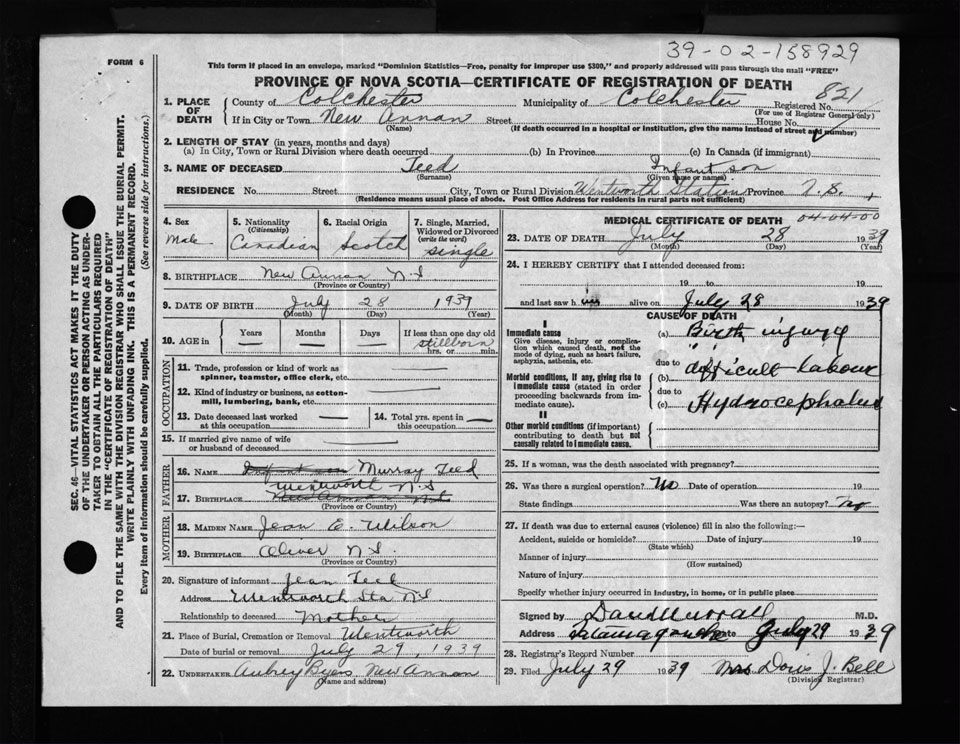 39-02-158929
FORM 6
This form if placed in an envelope, marked "Dominion Statistics—Free, penalty for improper use $300," and properly addressed will pass through the mail "FREE"
PROVINCE OF NOVA SCOTIA—CERTIFICATE OF REGISTRATION OF DEATH
821
1. PLACE OF DEATH County of Colchester Municipality of Colchester Registered No.
(For use of Registrar General only)
If in City or Town New Annan Street House No.
(Name) (If death occurred in a hospital or institution, give the name instead of street and number)
2. LENGTH OF STAY (in years, months and days)
(a) In City, Town or Rural Division where death occurred (b) In Province (c) In Canada (if immigrant)
3. NAME OF DECEASED Teed Infant son
(Surname) (Given name or names)
RESIDENCE No. Street City, Town or Rural Division Wentworth Station Province N.S.
(Residence means usual place of abode. Post Office Address for residents in rural parts not sufficient)
4. Sex Male
5. Nationality (Citizenship) Canadian
6. Racial Origin Scotch
7. Single, Married, Widowed or Divorced (write the word) single
8. BIRTHPLACE New Annan N.S
(Province or Country)
9. DATE OF BIRTH July 28 1939
(Month) (Day) (Year)
10. AGE in Years Months Days If less than one day old
stillborn
hrs. or min.
OCCUPATION
11. Trade, profession or kind of work as spinner, teamster, office clerk, etc.
12. Kind of industry or business, as cotton-mill, lumbering, bank, etc.
13. Date deceased last worked at this occupation
14. Total yrs. spent in this occupation
15. If married give name of wife or husband of deceased
FATHER
16. NAME Infant son Murray Teed
Wentworth N.S
17. BIRTHPLACE New Annan N.S
(Province or Country)
MOTHER
18. MAIDEN NAME Jean E. Wilson
19. BIRTHPLACE Oliver N.S.
(Province or Country)
20. Signature of informant Jean Teed
Address Wentworth Sta N.S
Relationship to deceased Mother
21. Place of Burial, Cremation or Removal Wentworth
Date of burial or removal July 29, 1939
22. UNDERTAKER Aubrey Byers New Annan
(Name and address)
MEDICAL CERTIFICATE OF DEATH 04-04-00
23. DATE OF DEATH July 28 1939
(Month) (Day) (Year)
24. I HEREBY CERTIFY that I attended deceased from:
19 to 19
and last saw him alive on July 28 1939
CAUSE OF DEATH
I
Immediate cause
Give disease, injury or complication which caused death, not the mode of dying, such as heart failure, asphyxia, asthenia, etc.
(a) Birth injury
due to
Morbid conditions, if any, giving rise to immediate cause (stated in order proceeding backwards from immediate cause).
(b) difficult labour
due to
(c) Hydrocephalus
II
Other morbid conditions (if important) contributing to death but not causally related to immediate cause.
25. If a woman, was the death associated with pregnancy?
26. Was there a surgical operation? No Date of operation 19
State findings Was there an autopsy? No
27. If death was due to external causes (violence) fill in also the following:—
Accident, suicide or homicide? Date of injury 19
(State which)
Manner of injury
(How sustained)
Nature of injury
Specify whether injury occurred in industry, in home, or in public place
Signed by Dan Murray M.D.
Address Tatamagouche Date July 29 1939
28. Registrar's Record Number
29. Filed July 29 1939 Mrs Doris J. Bell
(Division Registrar)
SEC. 46—VITAL STATISTICS ACT MAKES IT THE DUTY
OF THE UNDERTAKER OR PERSON ACTING AS UNDER-
TAKER TO OBTAIN ALL THE PARTICULARS REQUIRED
IN THE "CERTIFICATE OF REGISTRATION OF DEATH"
AND TO FILE THE SAME WITH THE DIVISION REGISTRAR WHO SHALL ISSUE THE BURIAL PERMIT.
WRITE PLAINLY WITH UNFADING INK. THIS IS A PERMANENT RECORD.
Every item of information should be carefully supplied. (See reverse side for instructions.)